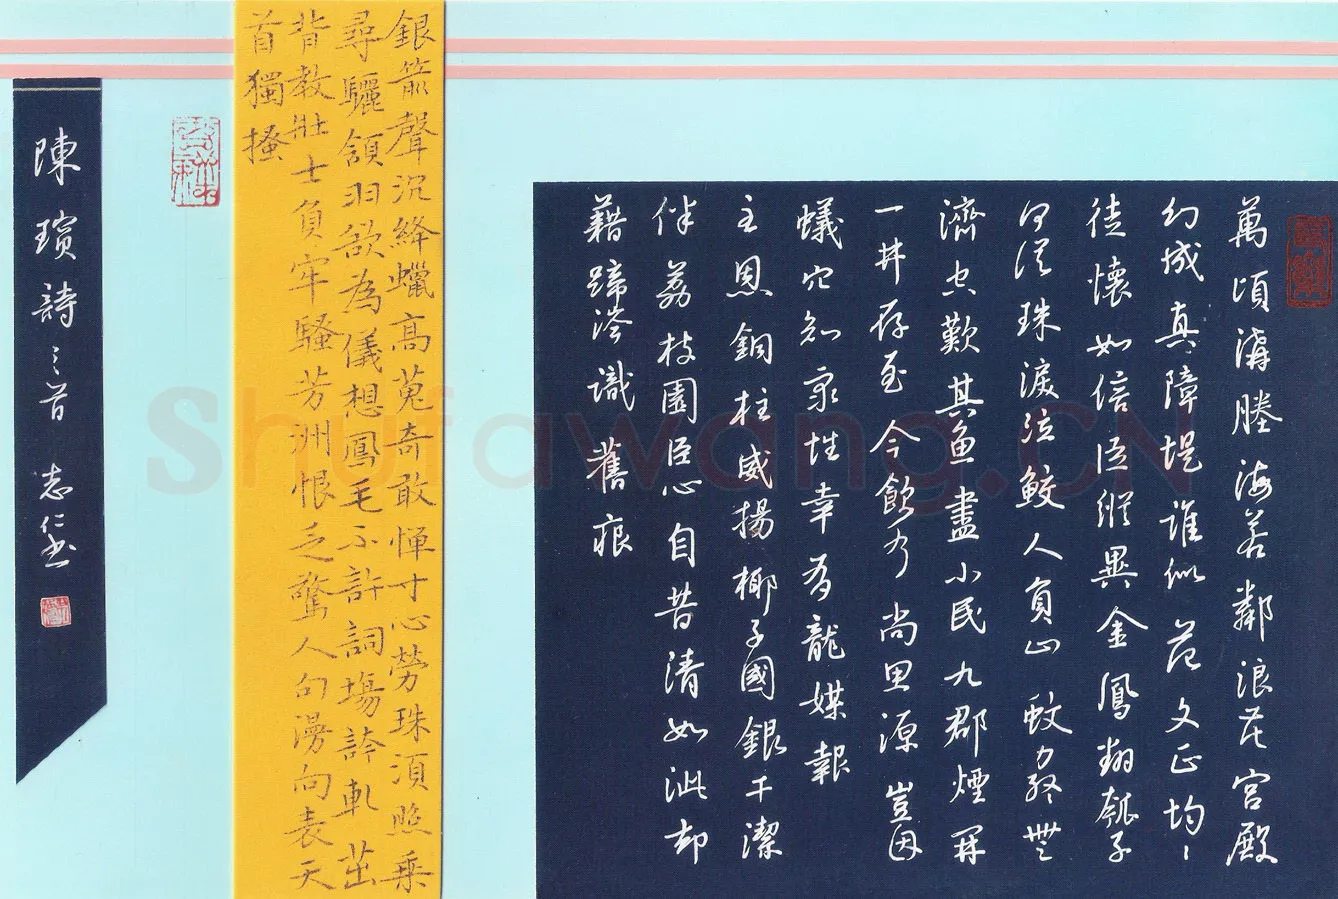 萬頃溝塍海若鄰浪花宮殿
幻城真障堤誰似范文正均々
徒懷如信臣縱異金鳳翔瓠子
何從珠淚泣鮫人負山蚊力終無
濟空歎其魚盡小民九郡煙開
一井存至今飲水尚思源豈因
蟻穴知泉性幸為龍媒報
主恩銅柱威揚椰子國銀干潔
伴荔枝園臣心自昔清如泚却
藉蹄涔識舊痕
銀箭聲沉絳蠟高蒐奇敢憚寸心勞珠須照乘
尋驪頷羽欲為儀想鳳毛不許詞場誇軋茁
背教壯士負牢騷芳洲恨乏驚人句漫向表天
首獨搔
陳璸詩三首 志仁書
Shufawang.CN